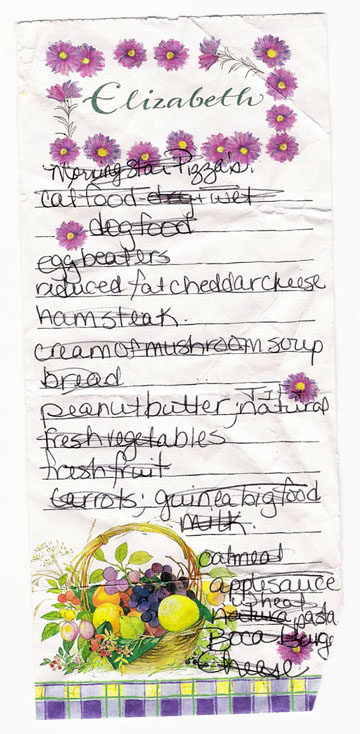 Elizabeth
Morningstar Pizza's.
cat food dry; wet
dog food
egg beaters
reduced fat cheddar cheese
ham steak.
cream of mushroom soup
bread
peanut butter; natural
fresh vegetables
fresh fruit
carrots; guinea big food
milk.
oatmeal
applesauce
wheat
pasta
Boca
cheese